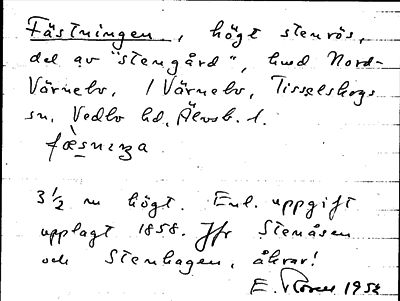 Fästningen, högt stenrös,
del av "stengård", hmd Nord-
Värnebo, / Värnebo, Tisselskogs
sn, Vedbo hd, Älvsb. l.
fæsniŋa
3 1/2 m högt. Enl. uppgift
upplagt 1858. Jfr Stenåsen
och Stenhagen, åkrar!
E. 1954